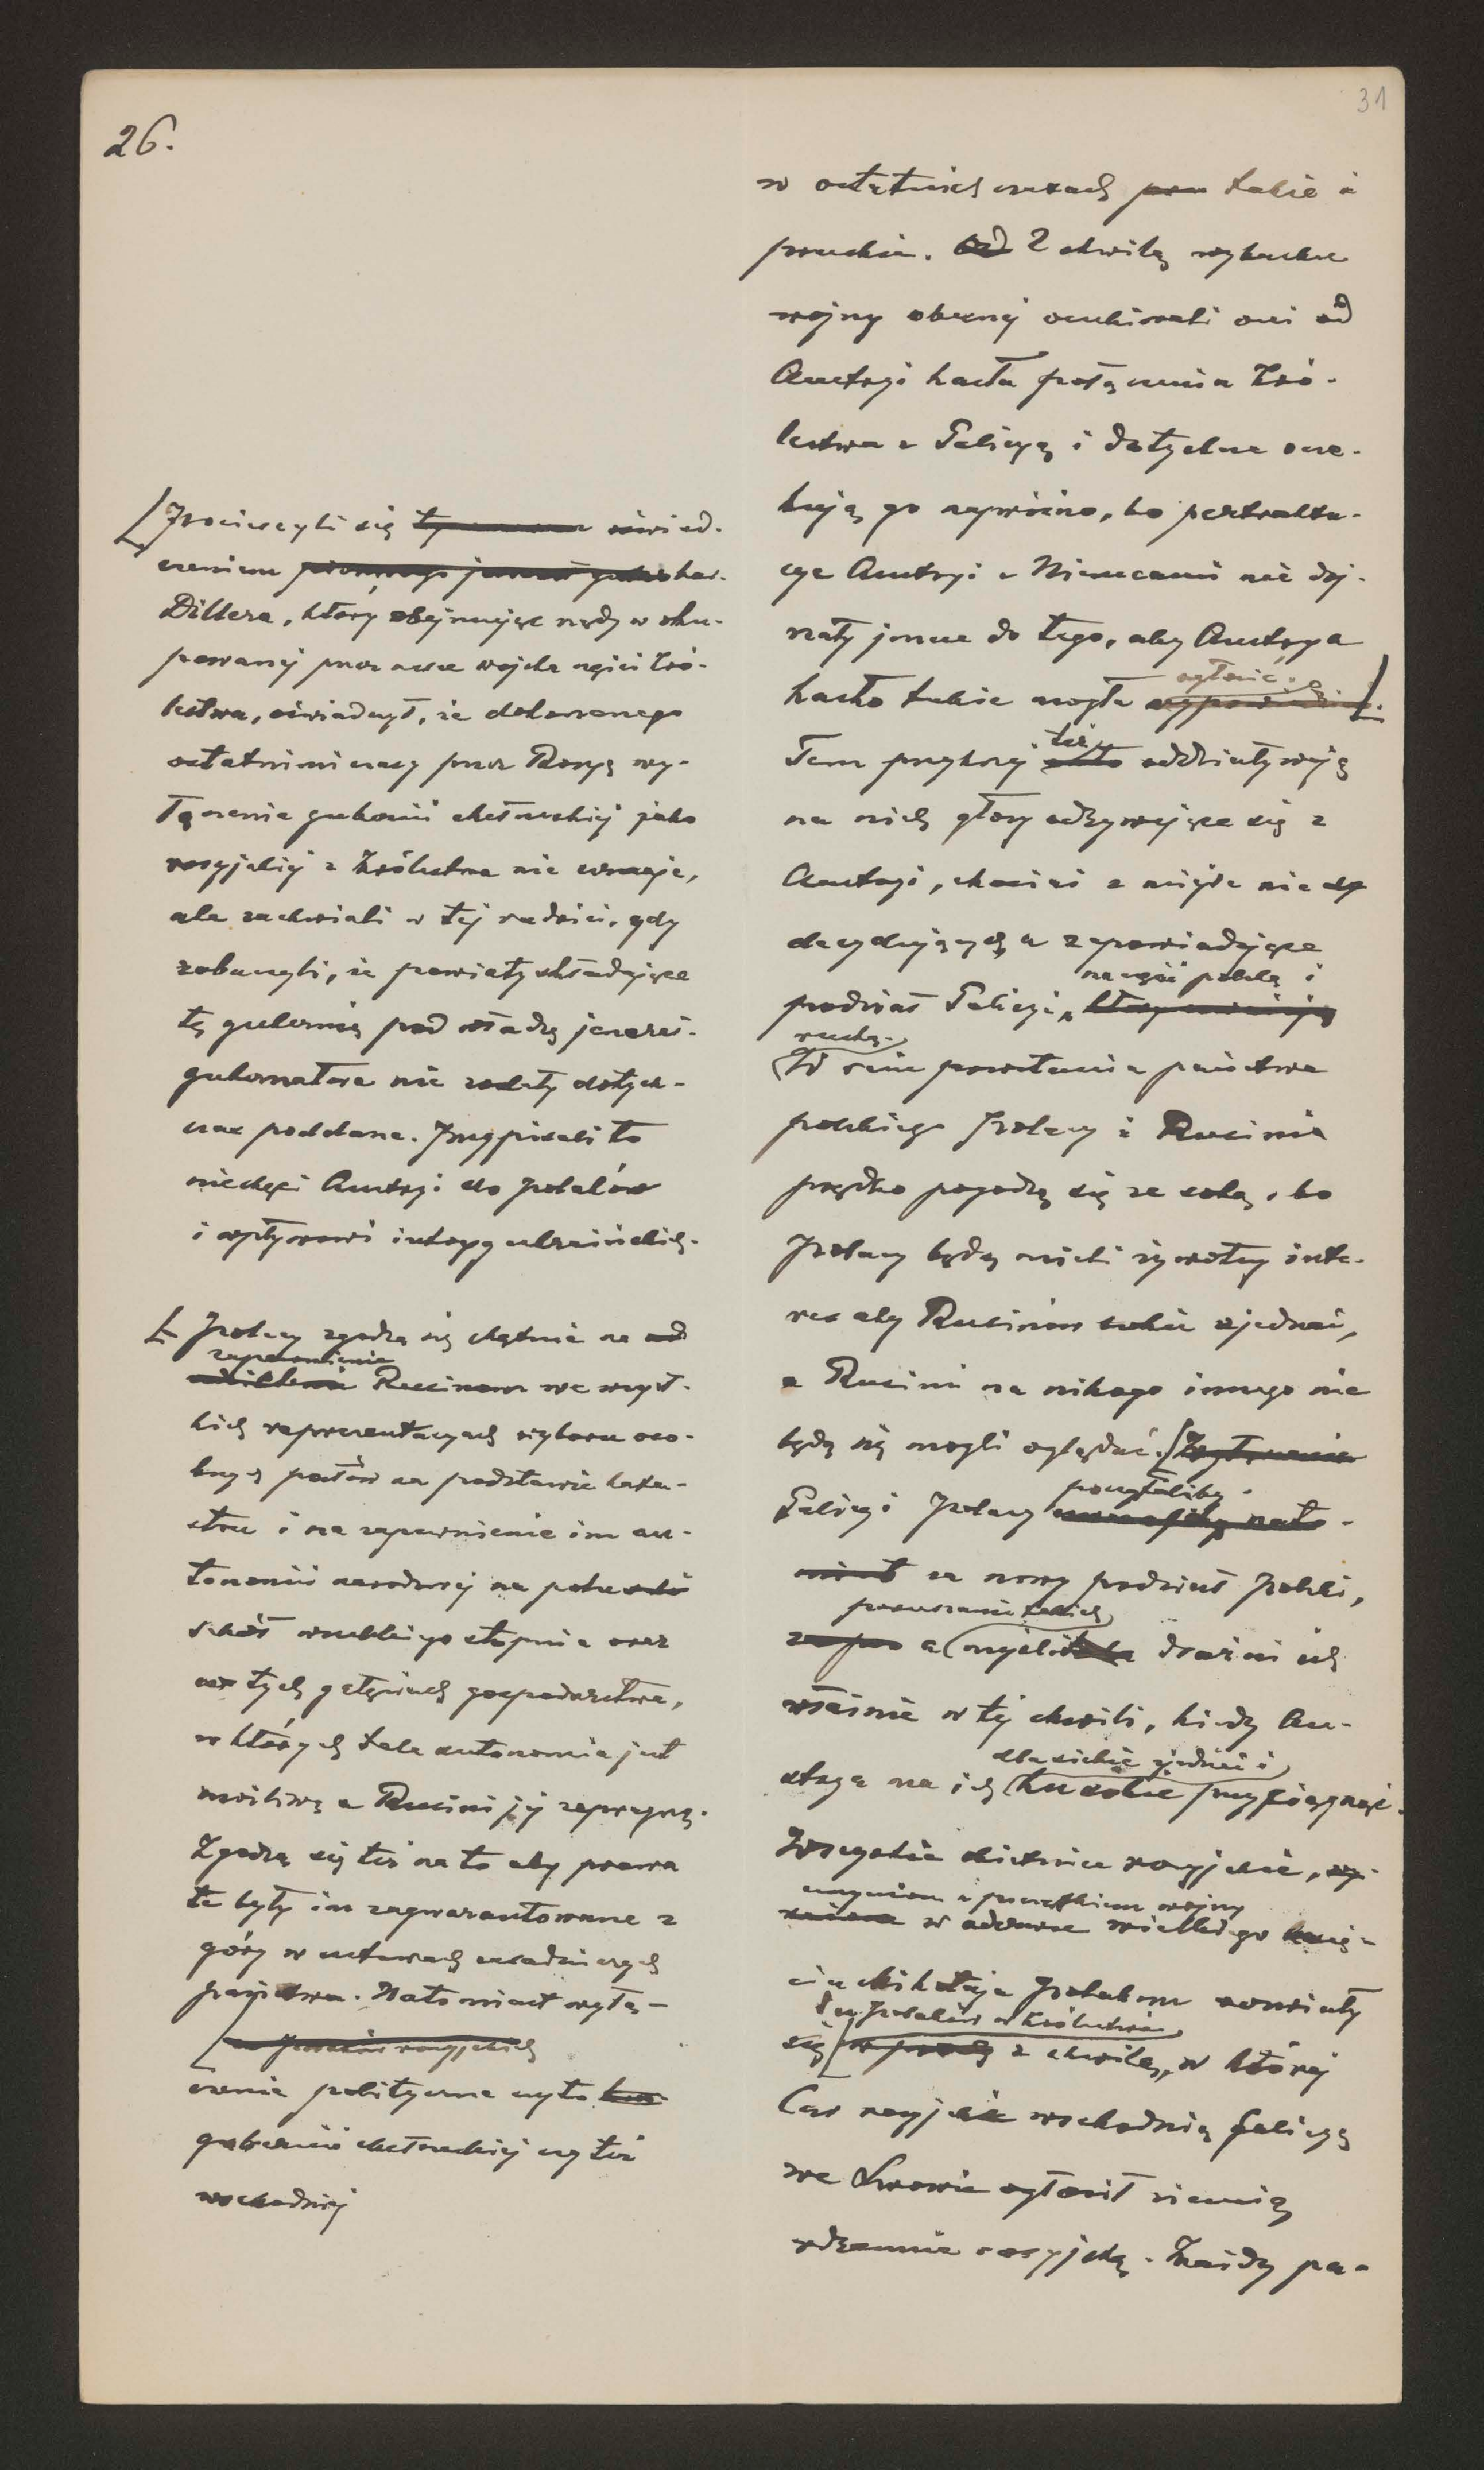 26.
31
[Pocieszyli się oświad-
czeniem bar.
Dillera, który obejmując rządy w oku-
powanej przez nasze wojska części Kró-
lestwa, oświadczył, że dokonanego
ostatnimi czasy przez Rosyę wy-
łączenia gubernii chełmskiej jako
rosyjskiej z Królestwa nie uznaje,
ale zachwiali w tej radości, gdy
zobaczyli, że powiaty składające
tę gubernię pod władzę jenerał-
gubernatora nie zostały dotych-
czas poddane. Przypisali to
niechęci Austryi do Polaków
i wpływowi intryg ukraińskich.
[ Polacy zgodzą się chętnie na
zapewnienie
Rusinom we wszyst-
kich reprezentacyach wyboru oso-
bnych posłów na podstawie kata-
stru i na zapewnienie im au-
tonomii narodowej na polu
szkół wszelkiego stopnia oraz
tych gałęziach gospodarstwa,
w których taka autonomia jest
możliwą a Rusini jej zapragną.
Zgodzą się też na to aby prawa
te były im zagwarantowane z
góry w ustawach zasadniczych
państwa. Natomiast wyłą-
czenie polityczne czy to
gubernii chełmskiej czy też
wschodniej
w ostatnich czasach takie i
pruskie. Z chwilą wybuchu
wojny obecnej oczekiwali oni od
Austryi hasła połączenia Kró-
lestwa z Galicyą i dotychczas ocze-
kują go napróżno, bo pertrakta-
cye Austryi z Niemcami nie doj-
rzały jeszcze do tego, aby Austrya
ogłosić
hasło takie mogła [.
też
Tem przykrzej oddziaływują
na nich głosy odzywające się z
Austryi, chociaż z miejsc nie
decydujących a zapowiadające
na część polską i
podział Galicyi
ruską.
W razie powstania państwa
polskiego Polacy i Rusini
prędko pogodzą się ze sobą, bo
Polacy będą mieli żywotny inte-
res aby Rusinów sobie zjednać,
a Rusini na nikogo innego nie
będą się mogli oglądać. [Wyłączenie
poczytaliby
Galicyi Polacy
za nowy podział Polski,
poruszanie takich
a myśli drażni ich
właśnie w tej chwili, kiedy Au-
dla siebie zjednać i
strya ma ich przyciągnąć.
Wszystkie obietnice rosyjskie,
uczynione z początkiem wojny
w odezwie wielkiego księ-
cia Mikołaja Polakom rozwiały
dla Polaków w Królestwie
się z chwilą, w której
Car rosyjski wschodnią Galicyę
we Lwowie ogłosił ziemią
rdzennie rosyjską. Każdy po-